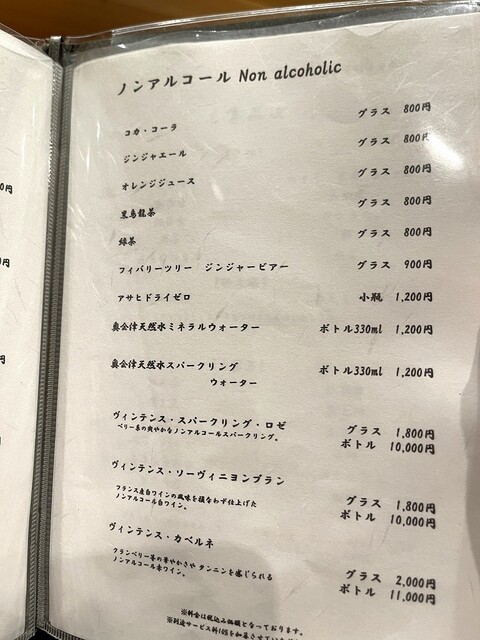 ノンアルコール Non alcoholic
コカ・コーラ グラス 800円
ジンジャエール グラス 800円
オレンジジュース グラス 800円
黒烏龍茶 グラス 800円
緑茶 グラス 800円
フィバリーツリー ジンジャービアー グラス 900円
アサヒドライゼロ 小瓶 1,200円
奥会津天然水ミネラルウォーター ボトル330ml 1,200円
奥会津天然水スパークリング ボトル330ml 1,200円
ウォーター
ヴィンテンス・スパークリング・ロゼ グラス 1,800円
ベリー系の爽やかなノンアルコールスパークリング。 ボトル 10,000円
ヴィンテンス・ソーヴィニヨンブラン
フランス産白ワインの風味を損なわず仕上げた グラス 1,800円
ノンアルコール白ワイン。 ボトル 10,000円
ヴィンテンス・カベルネ
クランベリー等の華やかさや タンニンを感じられる グラス 2,000円
ノンアルコール赤ワイン。 ボトル 11,000円
※料金は税込み価額となっております。
※別途サービス料10%を加算させていただ
0円
0円
円